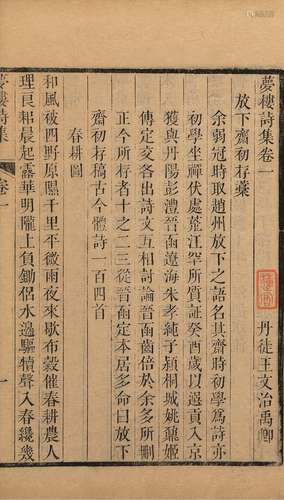 夢樓詩集卷一
丹徒王文治禹卿
放下齋初存藁
余弱冠時取趙州放下之語名其齋時初學為詩亦
初學坐禪伏處荒江罕所質証癸酉歲以選貢入京
獲與丹陽彭澧晉函遼海朱孝純子潁桐城姚鼐姬
傳定交各出詩文互相討論晉函齒倍於余多所刪
正今所存者十之二三從晉函定本居多命曰放下
齋初存稿古今體詩一百四首
春耕圖
和風被四野原隰千里平微雨夜來歇布穀催春耕農人
理良耜晨起露華明隴上負鋤侶水邊驅犢聲入春纔幾
夢樓詩集
卷一
一